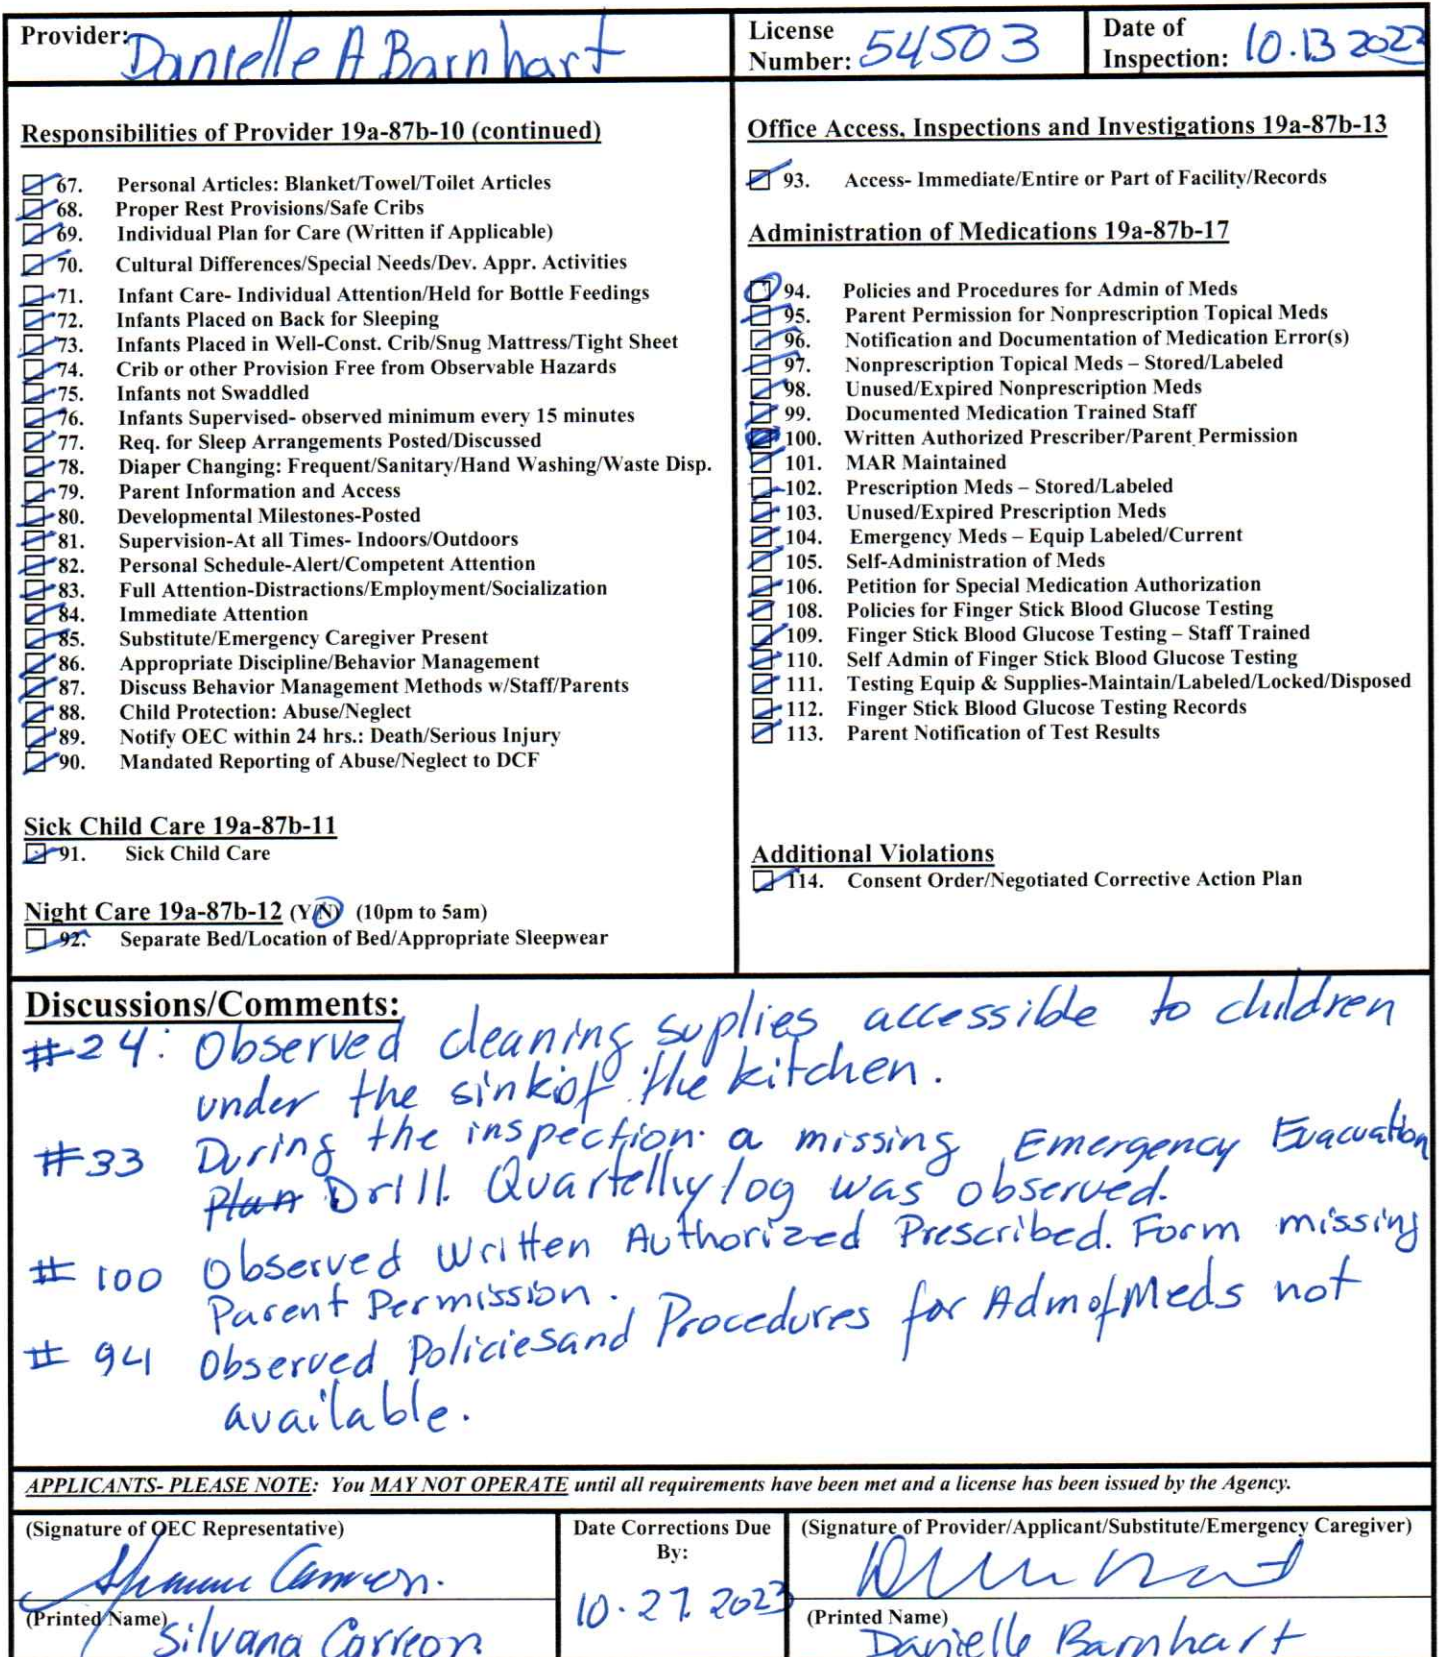 Provider: Danielle A Barnhart
License Number: 54503
Date of Inspection: 10.13 2023
Responsibilities of Provider 19a-87b-10 (continued)
67. Personal Articles: Blanket/Towel/Toilet Articles
68. Proper Rest Provisions/Safe Cribs
69. Individual Plan for Care (Written if Applicable)
70. Cultural Differences/Special Needs/Dev. Appr. Activities
71. Infant Care- Individual Attention/Held for Bottle Feedings
72. Infants Placed on Back for Sleeping
73. Infants Placed in Well-Const. Crib/Snug Mattress/Tight Sheet
74. Crib or other Provision Free from Observable Hazards
75. Infants not Swaddled
76. Infants Supervised- observed minimum every 15 minutes
77. Req. for Sleep Arrangements Posted/Discussed
78. Diaper Changing: Frequent/Sanitary/Hand Washing/Waste Disp.
79. Parent Information and Access
80. Developmental Milestones-Posted
81. Supervision-At all Times- Indoors/Outdoors
82. Personal Schedule-Alert/Competent Attention
83. Full Attention-Distractions/Employment/Socialization
84. Immediate Attention
85. Substitute/Emergency Caregiver Present
86. Appropriate Discipline/Behavior Management
87. Discuss Behavior Management Methods w/Staff/Parents
88. Child Protection: Abuse/Neglect
89. Notify OEC within 24 hrs.: Death/Serious Injury
90. Mandated Reporting of Abuse/Neglect to DCF
Sick Child Care 19a-87b-11
91. Sick Child Care
Night Care 19a-87b-12 (Y/N) (10pm to 5am)
92. Separate Bed/Location of Bed/Appropriate Sleepwear
Office Access, Inspections and Investigations 19a-87b-13
93. Access- Immediate/Entire or Part of Facility/Records
Administration of Medications 19a-87b-17
94. Policies and Procedures for Admin of Meds
95. Parent Permission for Nonprescription Topical Meds
96. Notification and Documentation of Medication Error(s)
97. Nonprescription Topical Meds – Stored/Labeled
98. Unused/Expired Nonprescription Meds
99. Documented Medication Trained Staff
100. Written Authorized Prescriber/Parent Permission
101. MAR Maintained
102. Prescription Meds – Stored/Labeled
103. Unused/Expired Prescription Meds
104. Emergency Meds – Equip Labeled/Current
105. Self-Administration of Meds
106. Petition for Special Medication Authorization
108. Policies for Finger Stick Blood Glucose Testing
109. Finger Stick Blood Glucose Testing – Staff Trained
110. Self Admin of Finger Stick Blood Glucose Testing
111. Testing Equip & Supplies-Maintain/Labeled/Locked/Disposed
112. Finger Stick Blood Glucose Testing Records
113. Parent Notification of Test Results
Additional Violations
114. Consent Order/Negotiated Corrective Action Plan
Discussions/Comments:
#24: Observed cleaning suplies accessible to children
under the sink of the kitchen.
#33 During the inspection a missing Emergency Evacuation
Plan Drill. Quartelly log was observed.
#100 Observed Written Authorized Prescribed. Form missing
Parent Permission.
#94 Observed Policies and Procedures for Adm of Meds not
available.
APPLICANTS- PLEASE NOTE: You MAY NOT OPERATE until all requirements have been met and a license has been issued by the Agency.
(Signature of OEC Representative)
(Printed Name) Silvana Carreon
Date Corrections Due
By:
10.27.2023
(Signature of Provider/Applicant/Substitute/Emergency Caregiver)
(Printed Name)
Danielle Barnhart